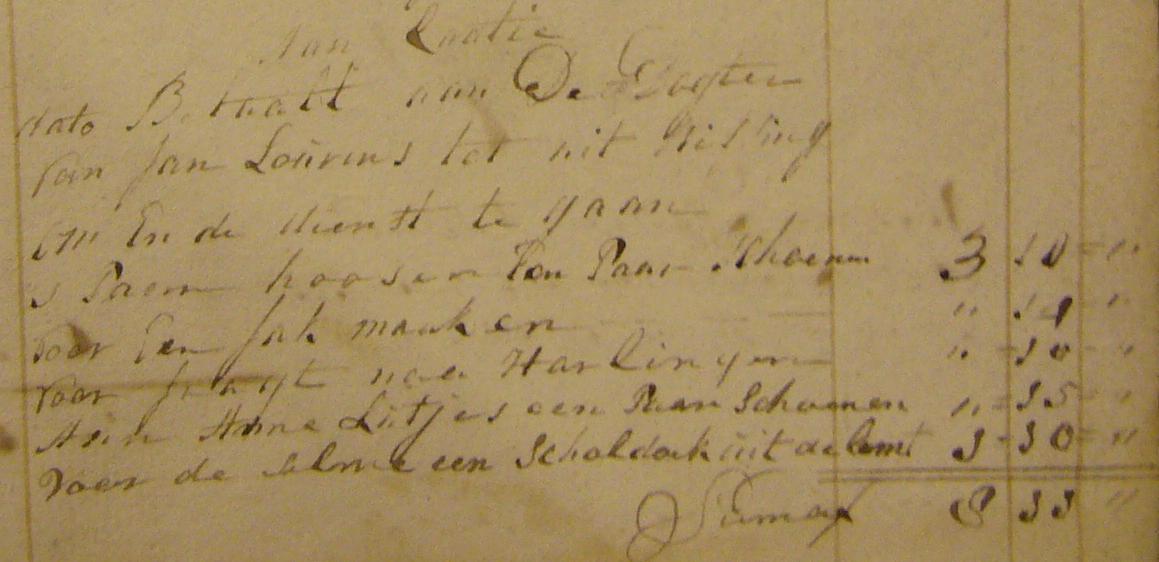 van
dato Betaalt aan De Dogter
van Jan Lourens tot uit
om In de dienst te gaan
1 Paer hoosen Een Paar Schoenen 3 10 = "
voor Een Jak maaken " 14 "
voor fragt nae Harlingen " = 10 = "
Aan Anne Luitjes een Paar Schoenen " = 15 = "
voor de selve een Scholdoek uit de 1 = 10 = "
Suma 8